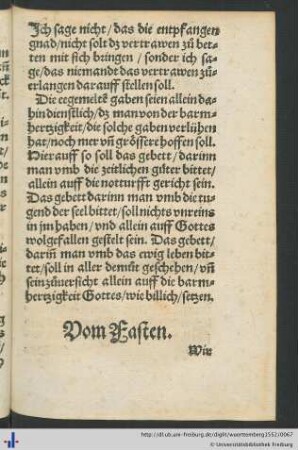 Ich sage nicht / das die entpfangen
gnad / nicht solt dz vertrawen zů bet-
ten mit sich bringen / sonder ich sa-
ge / das niemandt das vertrawen zů-
erlangen darauff stellen soll.
Die eegemelte gaben seien allein da-
hin dienstlich / dz man von der barm-
hertzigkeit / die solche gaben verlühen
hat / noch mer vñ grössere hoffen soll.
Hierauff so soll das gebett / darinn
man vmb die zeitlichen güter bittet /
allein auff die notturfft gericht sein.
Das gebett darinn man vmb die tu-
gend der seel bittet / soll nichts vnreins
in jm haben / vnd allein auff Gottes
wolgefallen gestelt sein. Das gebett /
dariñ man vmb das ewig leben bit-
tet / soll in aller demůt geschehen / vñ
sein zůuersicht allein auff die barm-
hertzigkeit Gottes / wie billich / setzen.
Vom Fasten.
Wie
http://dl.ub.uni-freiburg.de/diglit/wuerttemberg1552/0067
© Universitätsbibliothek Freiburg